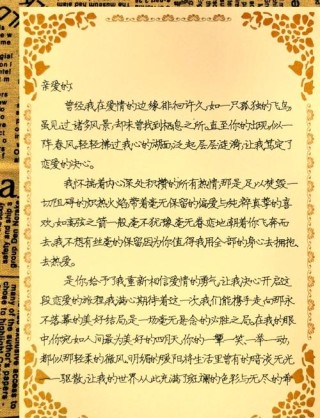 亲爱的:
曾经我在爱情的边缘徘徊许久,如一只孤独的飞鸟,
虽见过诸多风景,却未曾找到栖息之所。直至你的出现,似一
阵春风,轻轻拂过我心的湖面,泛起层层涟漪,让我笃定了
恋爱的决心。
我怀揣着内心深处积攒的所有热情,那是足以焚毁一
切阻碍的炽热火焰,带着毫无保留的偏爱与纯粹真挚的喜
欢,如离弦之箭一般,毫不犹豫毫无眷恋地朝着你飞奔而
去。我不想有丝毫的保留,因为你值得我用全部的身心去拥抱、
去热爱。
是你,给予了我重新相信爱情的勇气,让我决心开启这
段恋爱的旅程。我满心期待着这一次,我们能携手走向那永
不落幕的美好结局,是一场毫无悬念的必胜之局。在我的眼
中,你宛如人间最为美好的四月天,你的一颦一笑、一举一动,
都似那轻柔的微风,明媚的暖阳,将生活里曾有的暗淡无光
一一驱散,让我的世界从此充满了斑斓的色彩与无尽的希